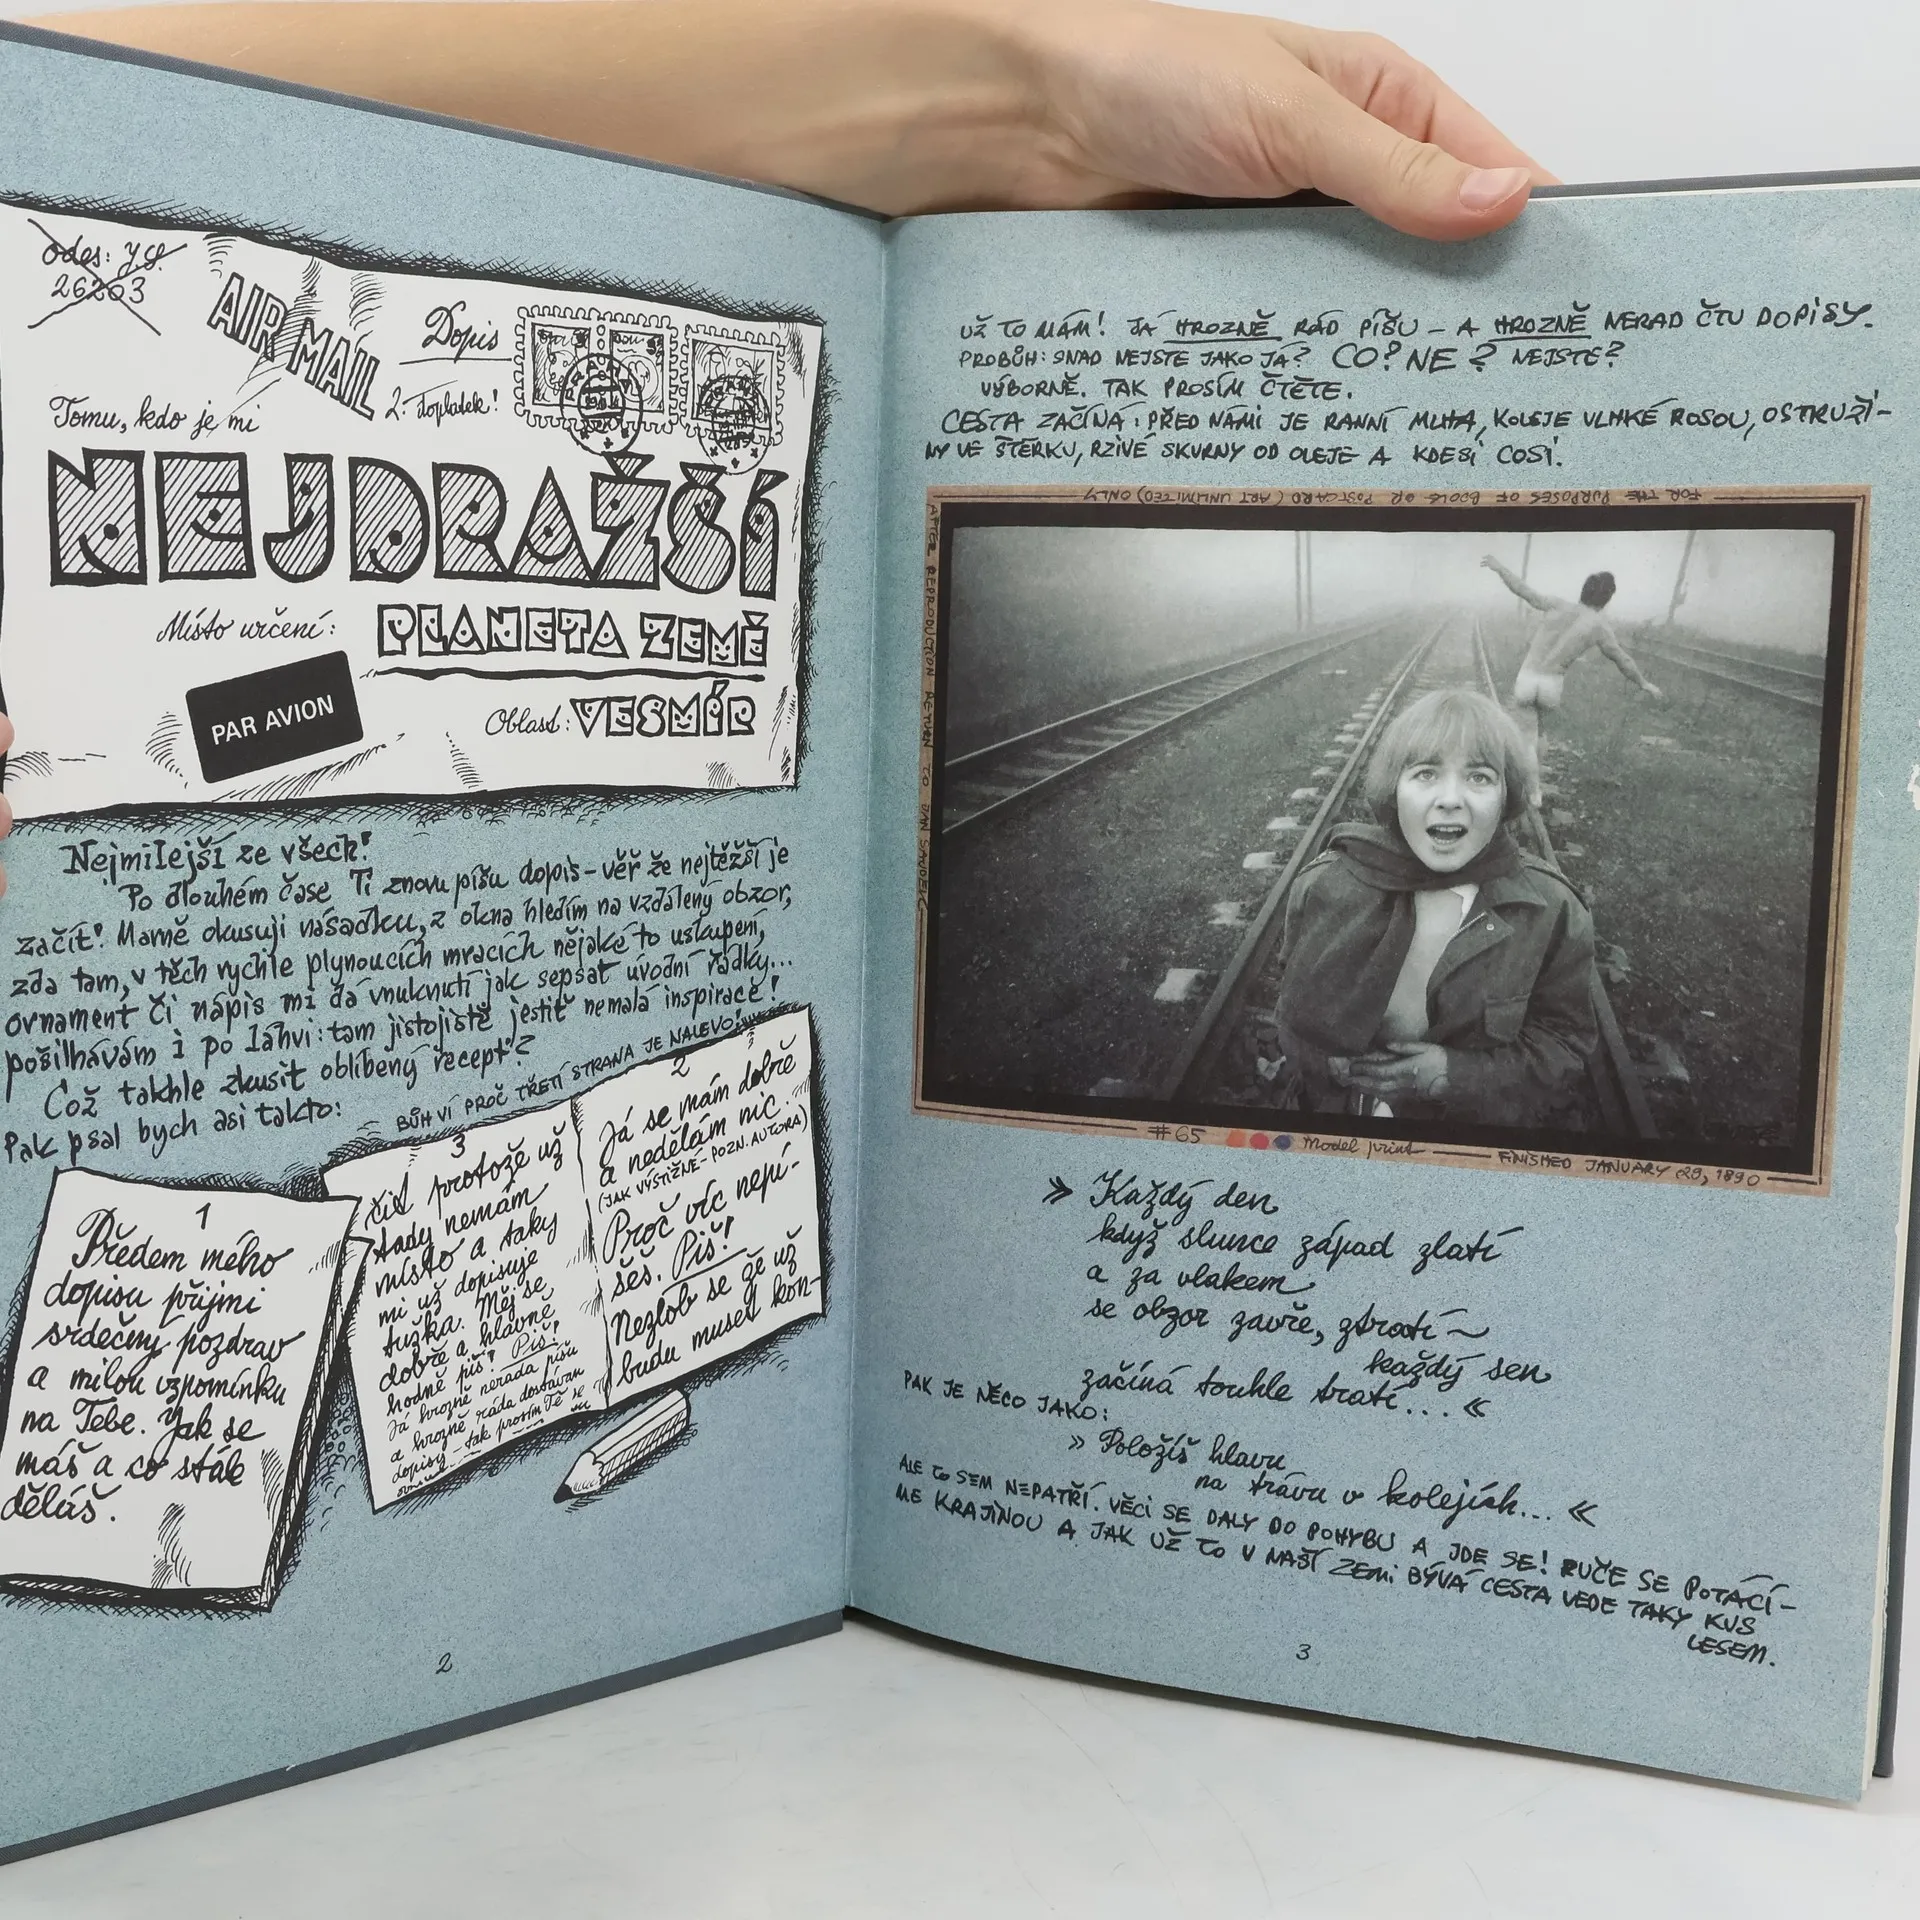 odes: J.S.
26203
AIR MAIL
Dopis
2. doplatek!
Tomu, kdo je mi
NEJDRAŽŠÍ
Místo určení:
PLANETA ZEMĚ
PAR AVION
Oblast: VESMÍR
Nejmilejší ze všech!
Po dlouhém čase Ti znovu píšu dopis – věř že nejtěžší je
začít! Marně okusuji násadku, z okna hledím na vzdálený obzor,
zda tam, v těch rychle plynoucích mracích nějaké to uskupení,
ornament či nápis mi dá vnuknutí jak sepsat úvodní řádky...
pošilhávám i po láhvi: tam jistojistě jestiť nemalá inspirace!
Což takhle zkusit oblíbený recept?
Pak psal bych asi takto:
BŮH VÍ PROČ TŘETÍ STRANA JE NALEVO!
1
Předem mého
dopisu přijmi
srdečný pozdrav
a milou vzpomínku
na Tebe. Jak se
máš a co stále
děláš.
2
Já se mám dobře
a nedělám nic.
(JAK VÝSTIŽNÉ – POZN. AUTORA)
Proč víc nepí-
šeš. Piš!
Nezlob se že už
budu muset kon-
3
čit protože už
tady nemám
místo a taky
mi už dopisuje
tužka. Měj se
dobře a hlavně
hodně piš! Piš!
Já hrozně nerada píšu
a hrozně ráda dostávám
dopisy – tak prosím Tě se
2
UŽ TO MÁM! JÁ HROZNĚ RÁD PÍŠU – A HROZNĚ NERAD ČTU DOPISY.
PROBŮH: SNAD NEJSTE JAKO JÁ? CO? NE? NEJSTE?
VÝBORNĚ. TAK PROSÍM ČTĚTE.
CESTA ZAČÍNÁ: PŘED NÁMI JE RANNÍ MLHA, KOLEJE VLHKÉ ROSOU, OSTRUŽI-
NY VE ŠTĚRKU, RZIVÉ SKVRNY OD OLEJE A KDESI COSI.
FOR THE PURPOSES OF BOOKS OR POSTCARD (ART UNLIMITED) ONLY
AFTER REPRODUCTION RETURN TO JAN SAUDEK
#65 Model print FINISHED JANUARY 29, 1890
» Každý den
když slunce západ zlatí
a za vlakem
se obzor zavře, ztratí ~
každý sen
začíná touhle tratí... «
PAK JE NĚCO JAKO:
» Položíš hlavu
na trávu v kolejích... «
ALE TO SEM NEPATŘÍ. VĚCI SE DALY DO POHYBU A JDE SE! RUČE SE POTÁCÍ-
ME KRAJINOU A JAK UŽ TO V NAŠÍ ZEMI BÝVÁ CESTA VEDE TAKY KUS
LESEM.
3